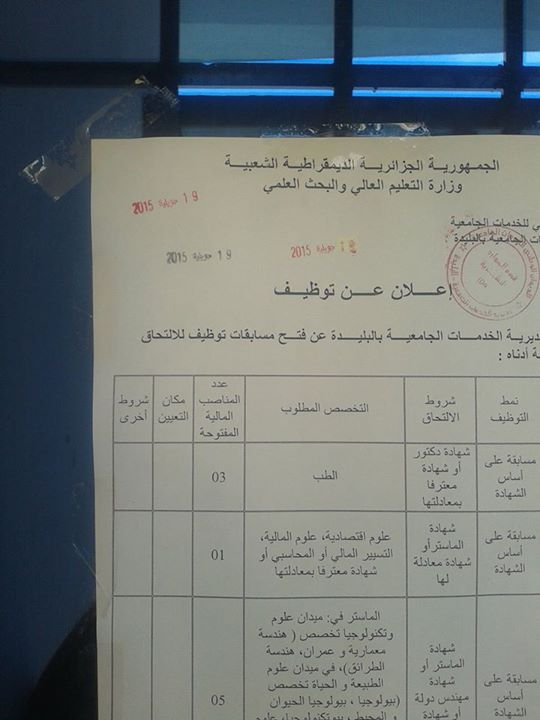 الجمهورية الجزائرية الديمقراطية الشعبية
وزارة التعليم العالي والبحث العلمي
19 جويلية 2015
للخدمات الجامعية
الجامعية بالبليدة
19 جويلية 2015
19 جويلية 2015
إعلان عن توظيف
الخدمات الجامعية بالبليدة عن فتح مسابقات توظيف للالتحاق
أدناه :
نمط التوظيف
شروط الالتحاق
التخصص المطلوب
عدد المناصب المالية المفتوحة
مكان التعيين
شروط أخرى
مسابقة على أساس الشهادة
شهادة دكتور أو شهادة معترفا بمعادلتها
الطب
03
مسابقة على أساس الشهادة
شهادة الماستر أو شهادة معادلة لها
علوم اقتصادية، علوم المالية،
التسيير المالي أو المحاسبي أو
شهادة معترفا بمعادلتها
01
مسابقة على أساس الشهادة
شهادة الماستر أو شهادة مهندس دولة أو شهادة
الماستر في: ميدان علوم
وتكنولوجيا تخصص ( هندسة
معمارية و عمران، هندسة
الطرائق)، في ميدان علوم
الطبيعة و الحياة تخصص
(بيولوجيا ، بيولوجيا الحيوان
05